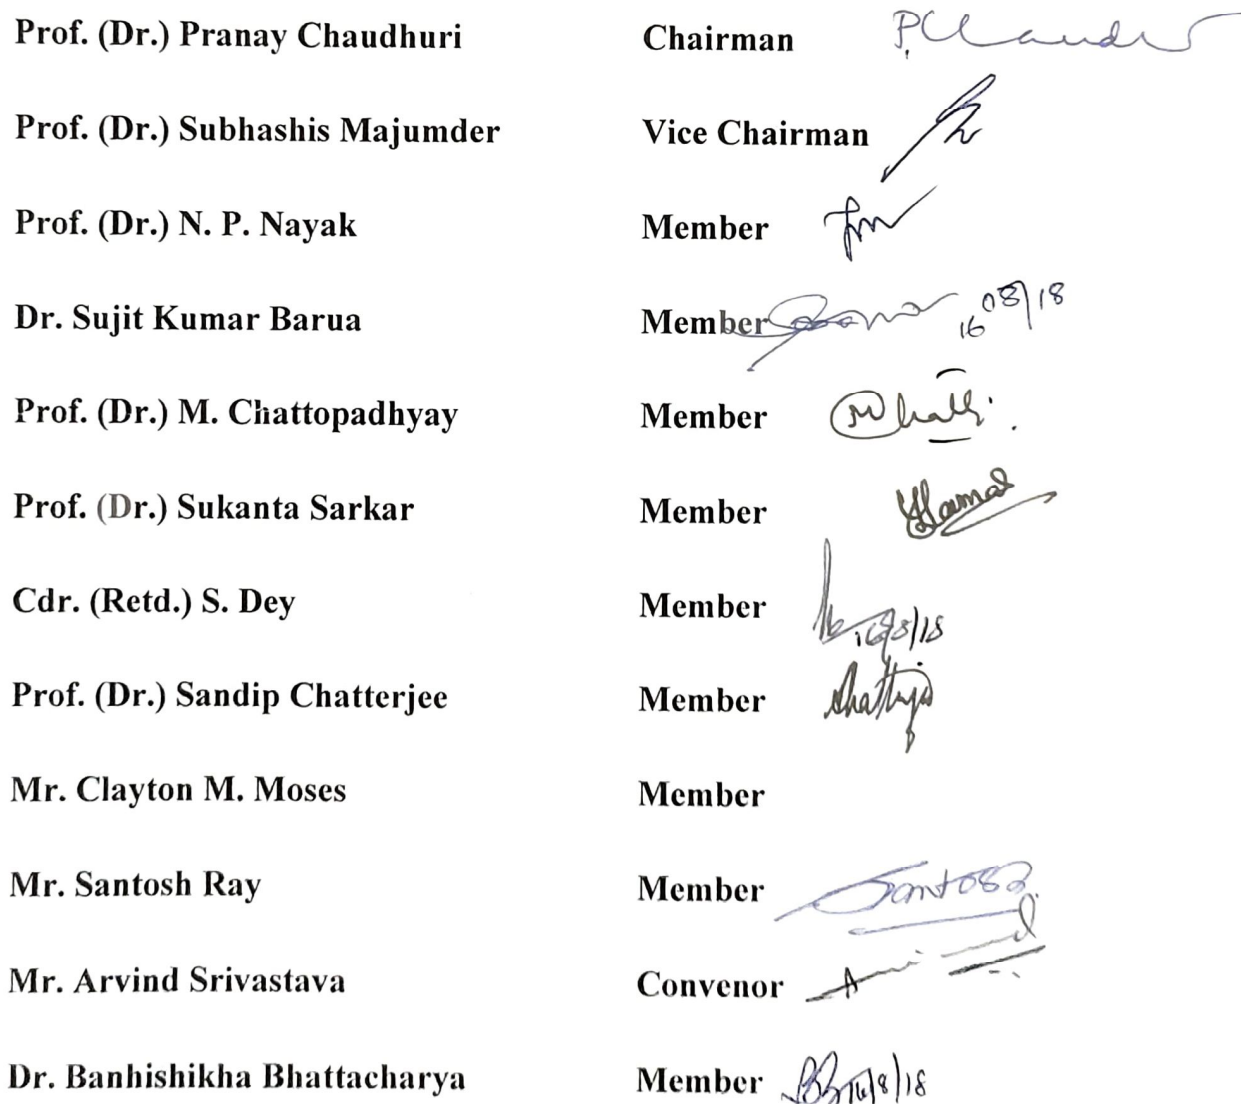 Prof. (Dr.) Pranay Chaudhuri Chairman
Prof. (Dr.) Subhashis Majumder Vice Chairman
Prof. (Dr.) N. P. Nayak Member
Dr. Sujit Kumar Barua Member 16/08/18
Prof. (Dr.) M. Chattopadhyay Member
Prof. (Dr.) Sukanta Sarkar Member
Cdr. (Retd.) S. Dey Member 16/8/18
Prof. (Dr.) Sandip Chatterjee Member
Mr. Clayton M. Moses Member
Mr. Santosh Ray Member
Mr. Arvind Srivastava Convenor
Dr. Banhishikha Bhattacharya Member 16/8/18